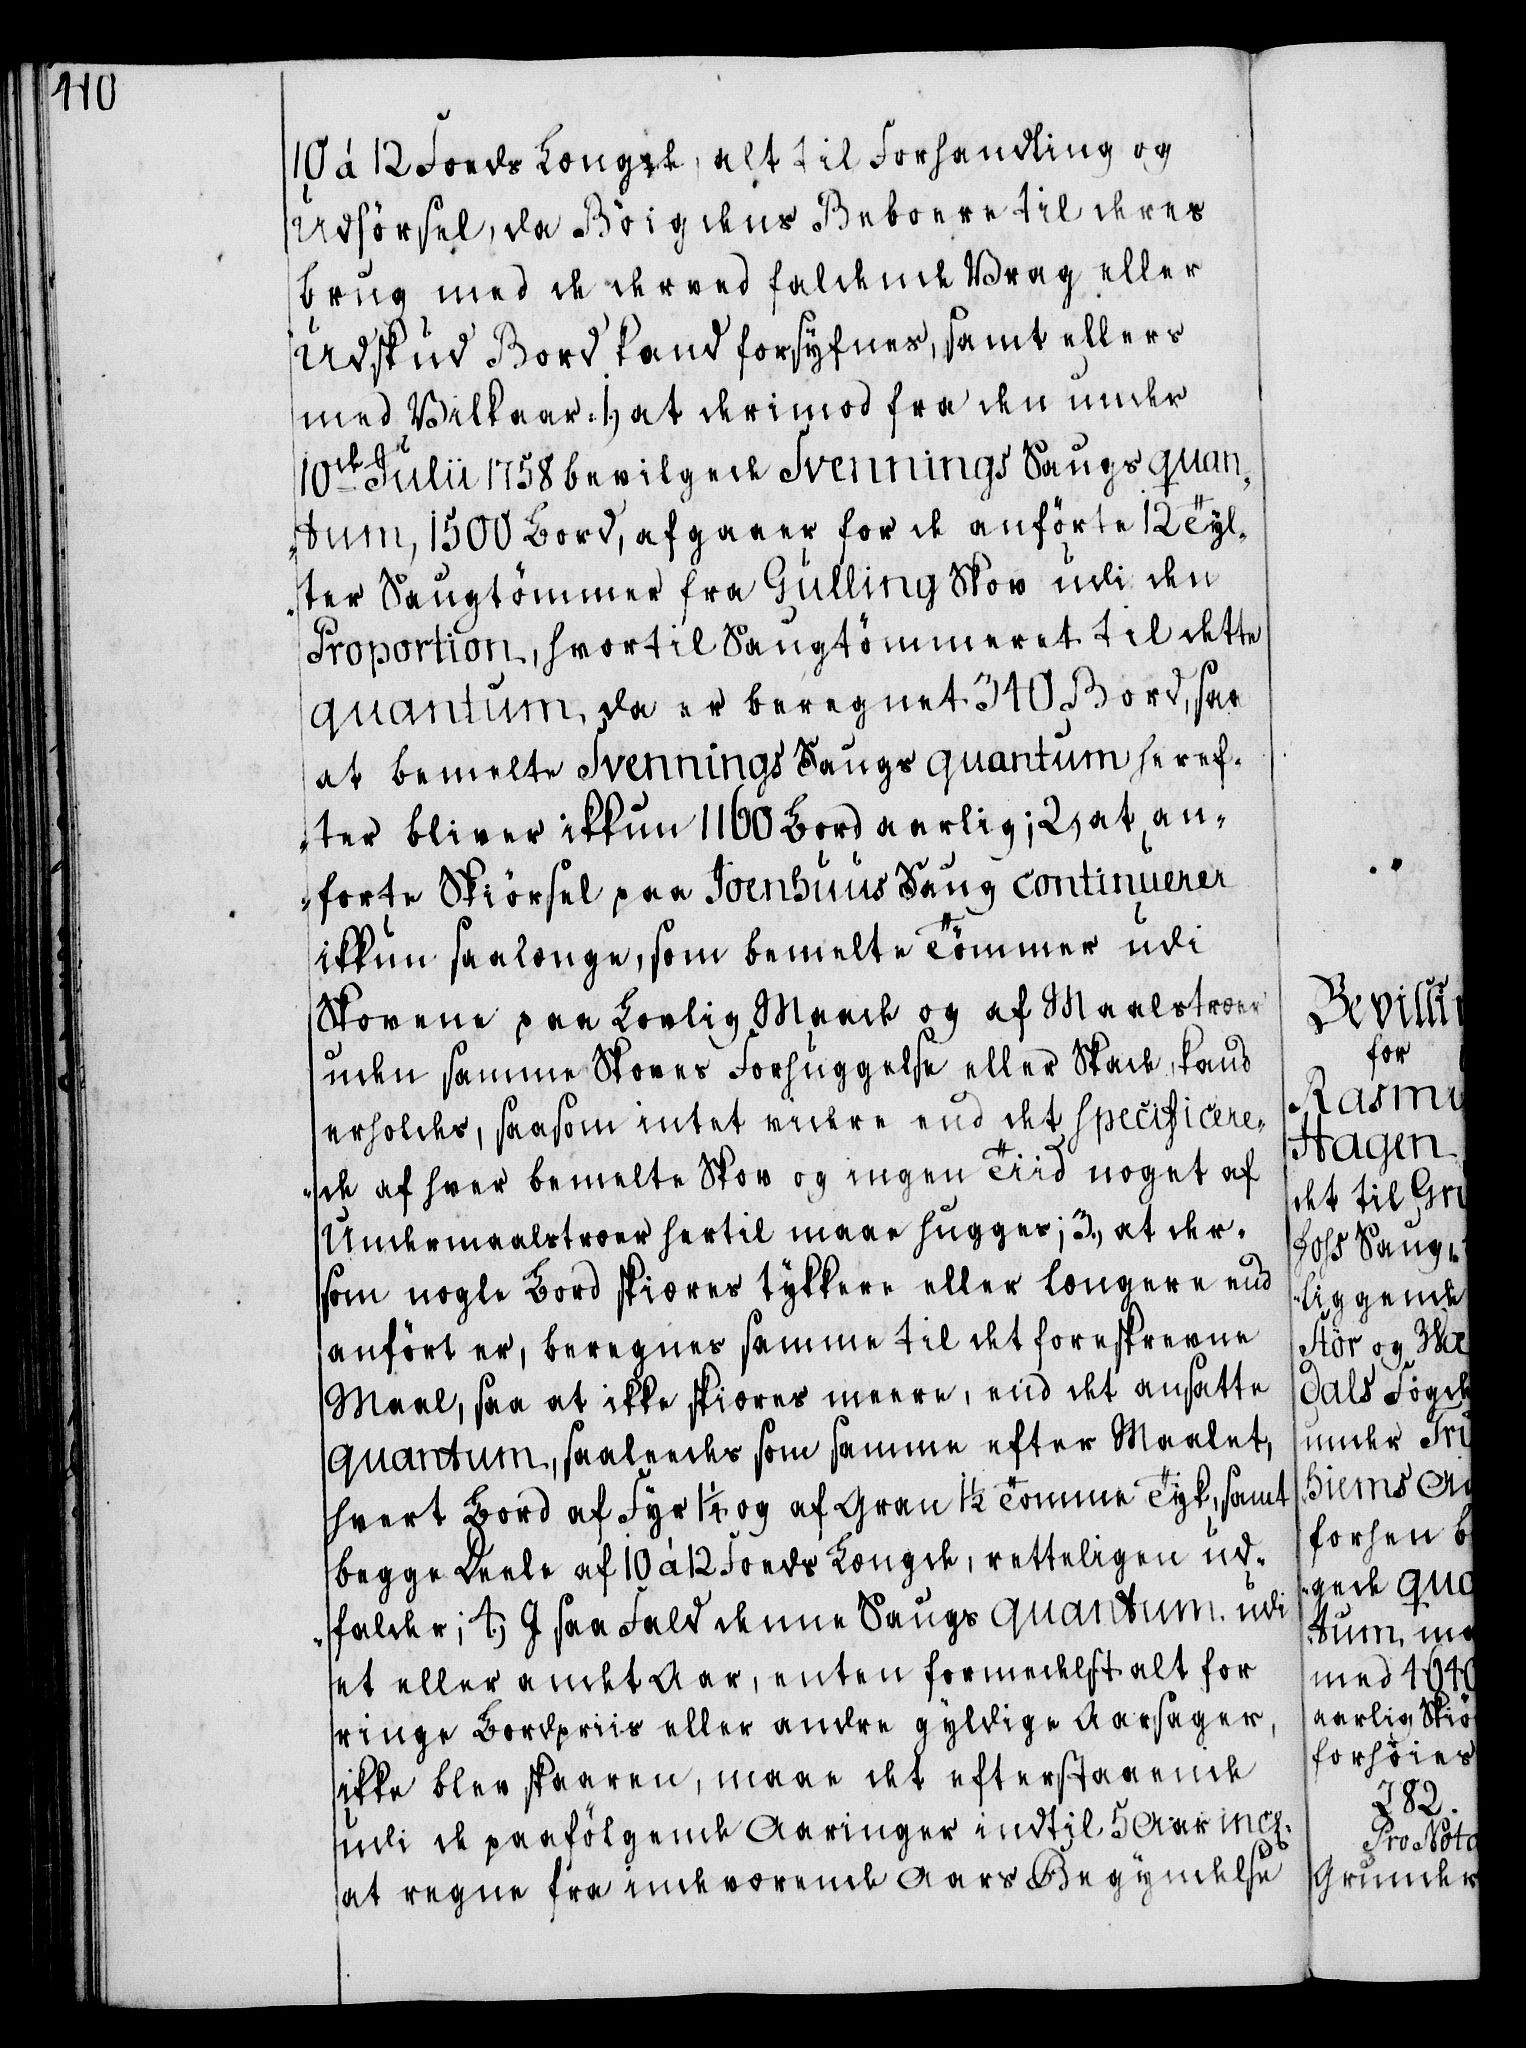 410
10 á 12 Foeds Længde, alt til Forhandling og
Udförsel, da Böigdens Beboere til deres
brug med de derved faldende Vrag eller
Udskud Bord kand forsÿfnes, samt ellers
med Vilkaar: 1, at derimod fra den under
10de Julii 1758 bevilgede Svennings Saugs quan„
„tum, 1500 Bord, afgaaer for de anförte 12 Tyl„
„ter Saugtömmer fra Gulling Skov udi den
Proportion, hvortil Saugtömmeret til dette
quantum, da er beregnet 340 Bord, saa
at bemelte Svennings Saugs quantum heref„
„ter bliver ikkun 1160 Bord aarlig; 2, at an„
„forte Skiörsel paa Joenhuus Saug continuerer
ikkun saalænge, som bemelte Tömmer udi
Skovene paa Lovlig Maade og af Maalstræer
uden samme Skoves Forhuggelse eller Skade, kand
erholdes, saasom intet videre end det specificere„
„de af hver bemelte Skov og ingen Tiid noget af
Undermaalstræer hertil maae hugges; 3, at der„
som nogle Bord skiæres tÿkkere eller længere end
anfört er, beregnes samme til det foreskrevne
Maal, saa at ikke skiæres meere, end det ansatte
quantum, saaleedes som samme efter Maalet,
hvert Bord af Fyr 1¼ og af Gran 1½ Tomme Tyk, samt
begge Deele af 10 á 12 Foeds Længde, retteligen ud„
„falder; 4, I saa Fald denne Saugs quantum udi
et eller andet Aar, enten formedelst alt for
ringe Bordpriis eller andre gyldige Aarsager,
ikke blev skaaren, maae det efterstaaende
udi de paafölgende Aaringer indtil 5 Aar incl.
at regne fra indeværende Aars Begyndelse
Bevilli
for
Rasmu
Hagen
det til Gri
hoss Saug
„liggende
Stör og
dals Foged
under Tri
hiems
forhen b
„gede qua
„tum, ma
med 4040
aarlig Skiö
forhöies
282.
Pro Nota
Grunder